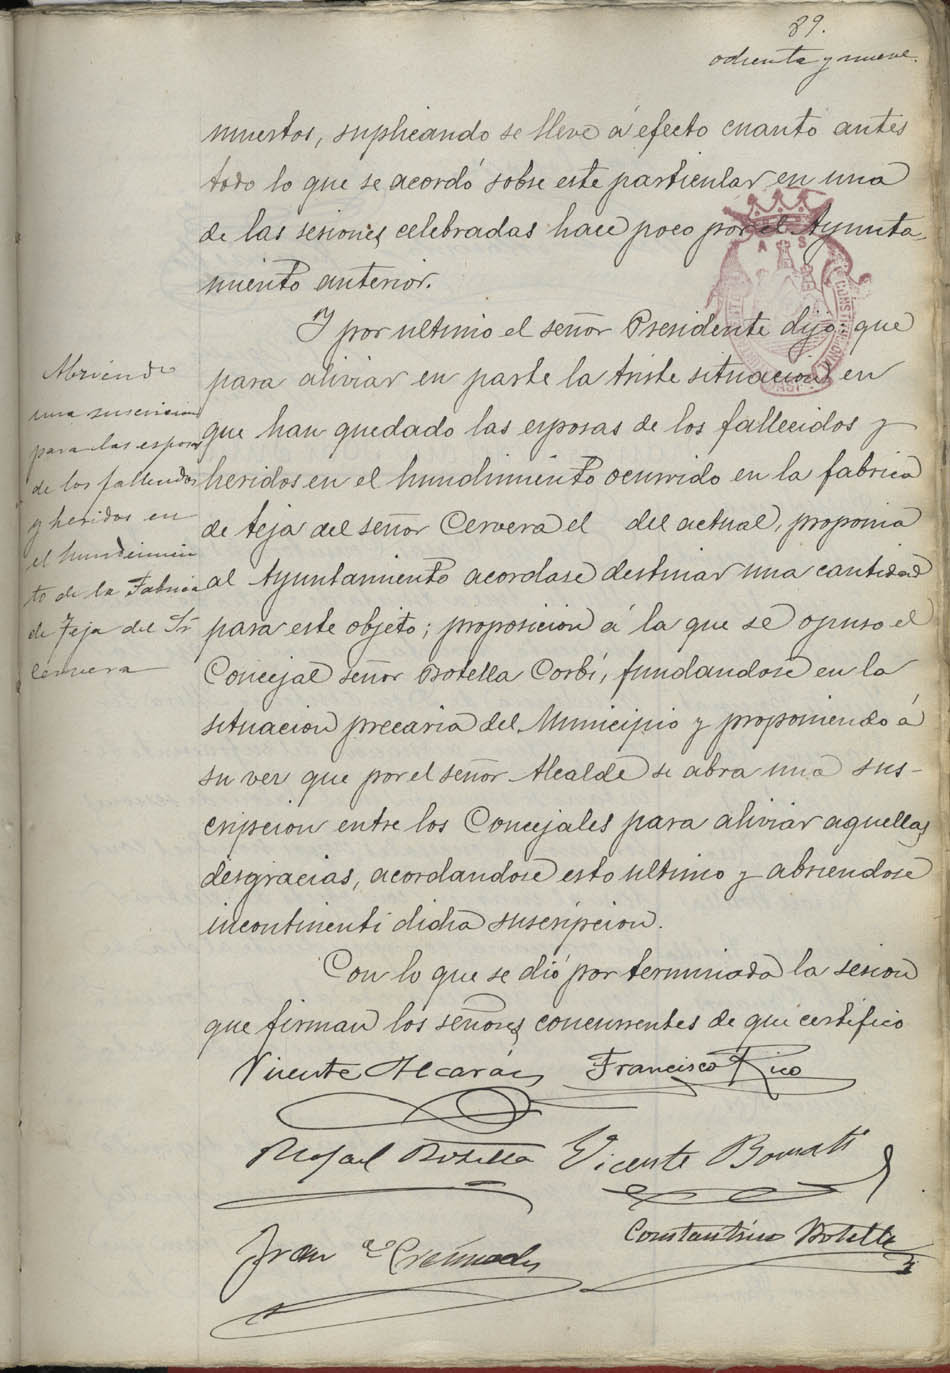 89.
ochenta y nueve.
muertos, suplicando se lleve á efecto cuanto antes
todo lo que se acordó sobre este particular en una
de las sesiones celebradas hace poco por el Ayunta-
miento anterior.
Y por ultimo el señor Presidente dijo: que
para aliviar en parte la triste situacion en
que han quedado las esposas de los fallecidos y
heridos en el hundimiento ocurrido en la fabrica
de teja del señor Cervera el del actual, proponia
al Ayuntamiento acordase destinar una cantidad
para este objeto; proposicion á la que se opuso el
Concejal señor Botella Corbí, fundandose en la
situacion precaria del Municipio y proponiendo á
su vez que por el señor Alcalde se abra una sus-
cripcion entre los Concejales para aliviar aquellas
desgracias, acordandose esto ultimo y abriendose
incontinenti dicha suscripcion.
Con lo que se dió por terminada la sesion
que firman los señores concurrentes de que certifico
Abriendo
una suscricion
para las esposas
de los fallecidos
y heridos en
el hundimien
to de la Fabrica
de Teja del Sr
Cervera
Vicente Alcaráz Francisco Rico
Rafael Botella Vicente Bonmati
Constantino Botella
Fran co Cremades